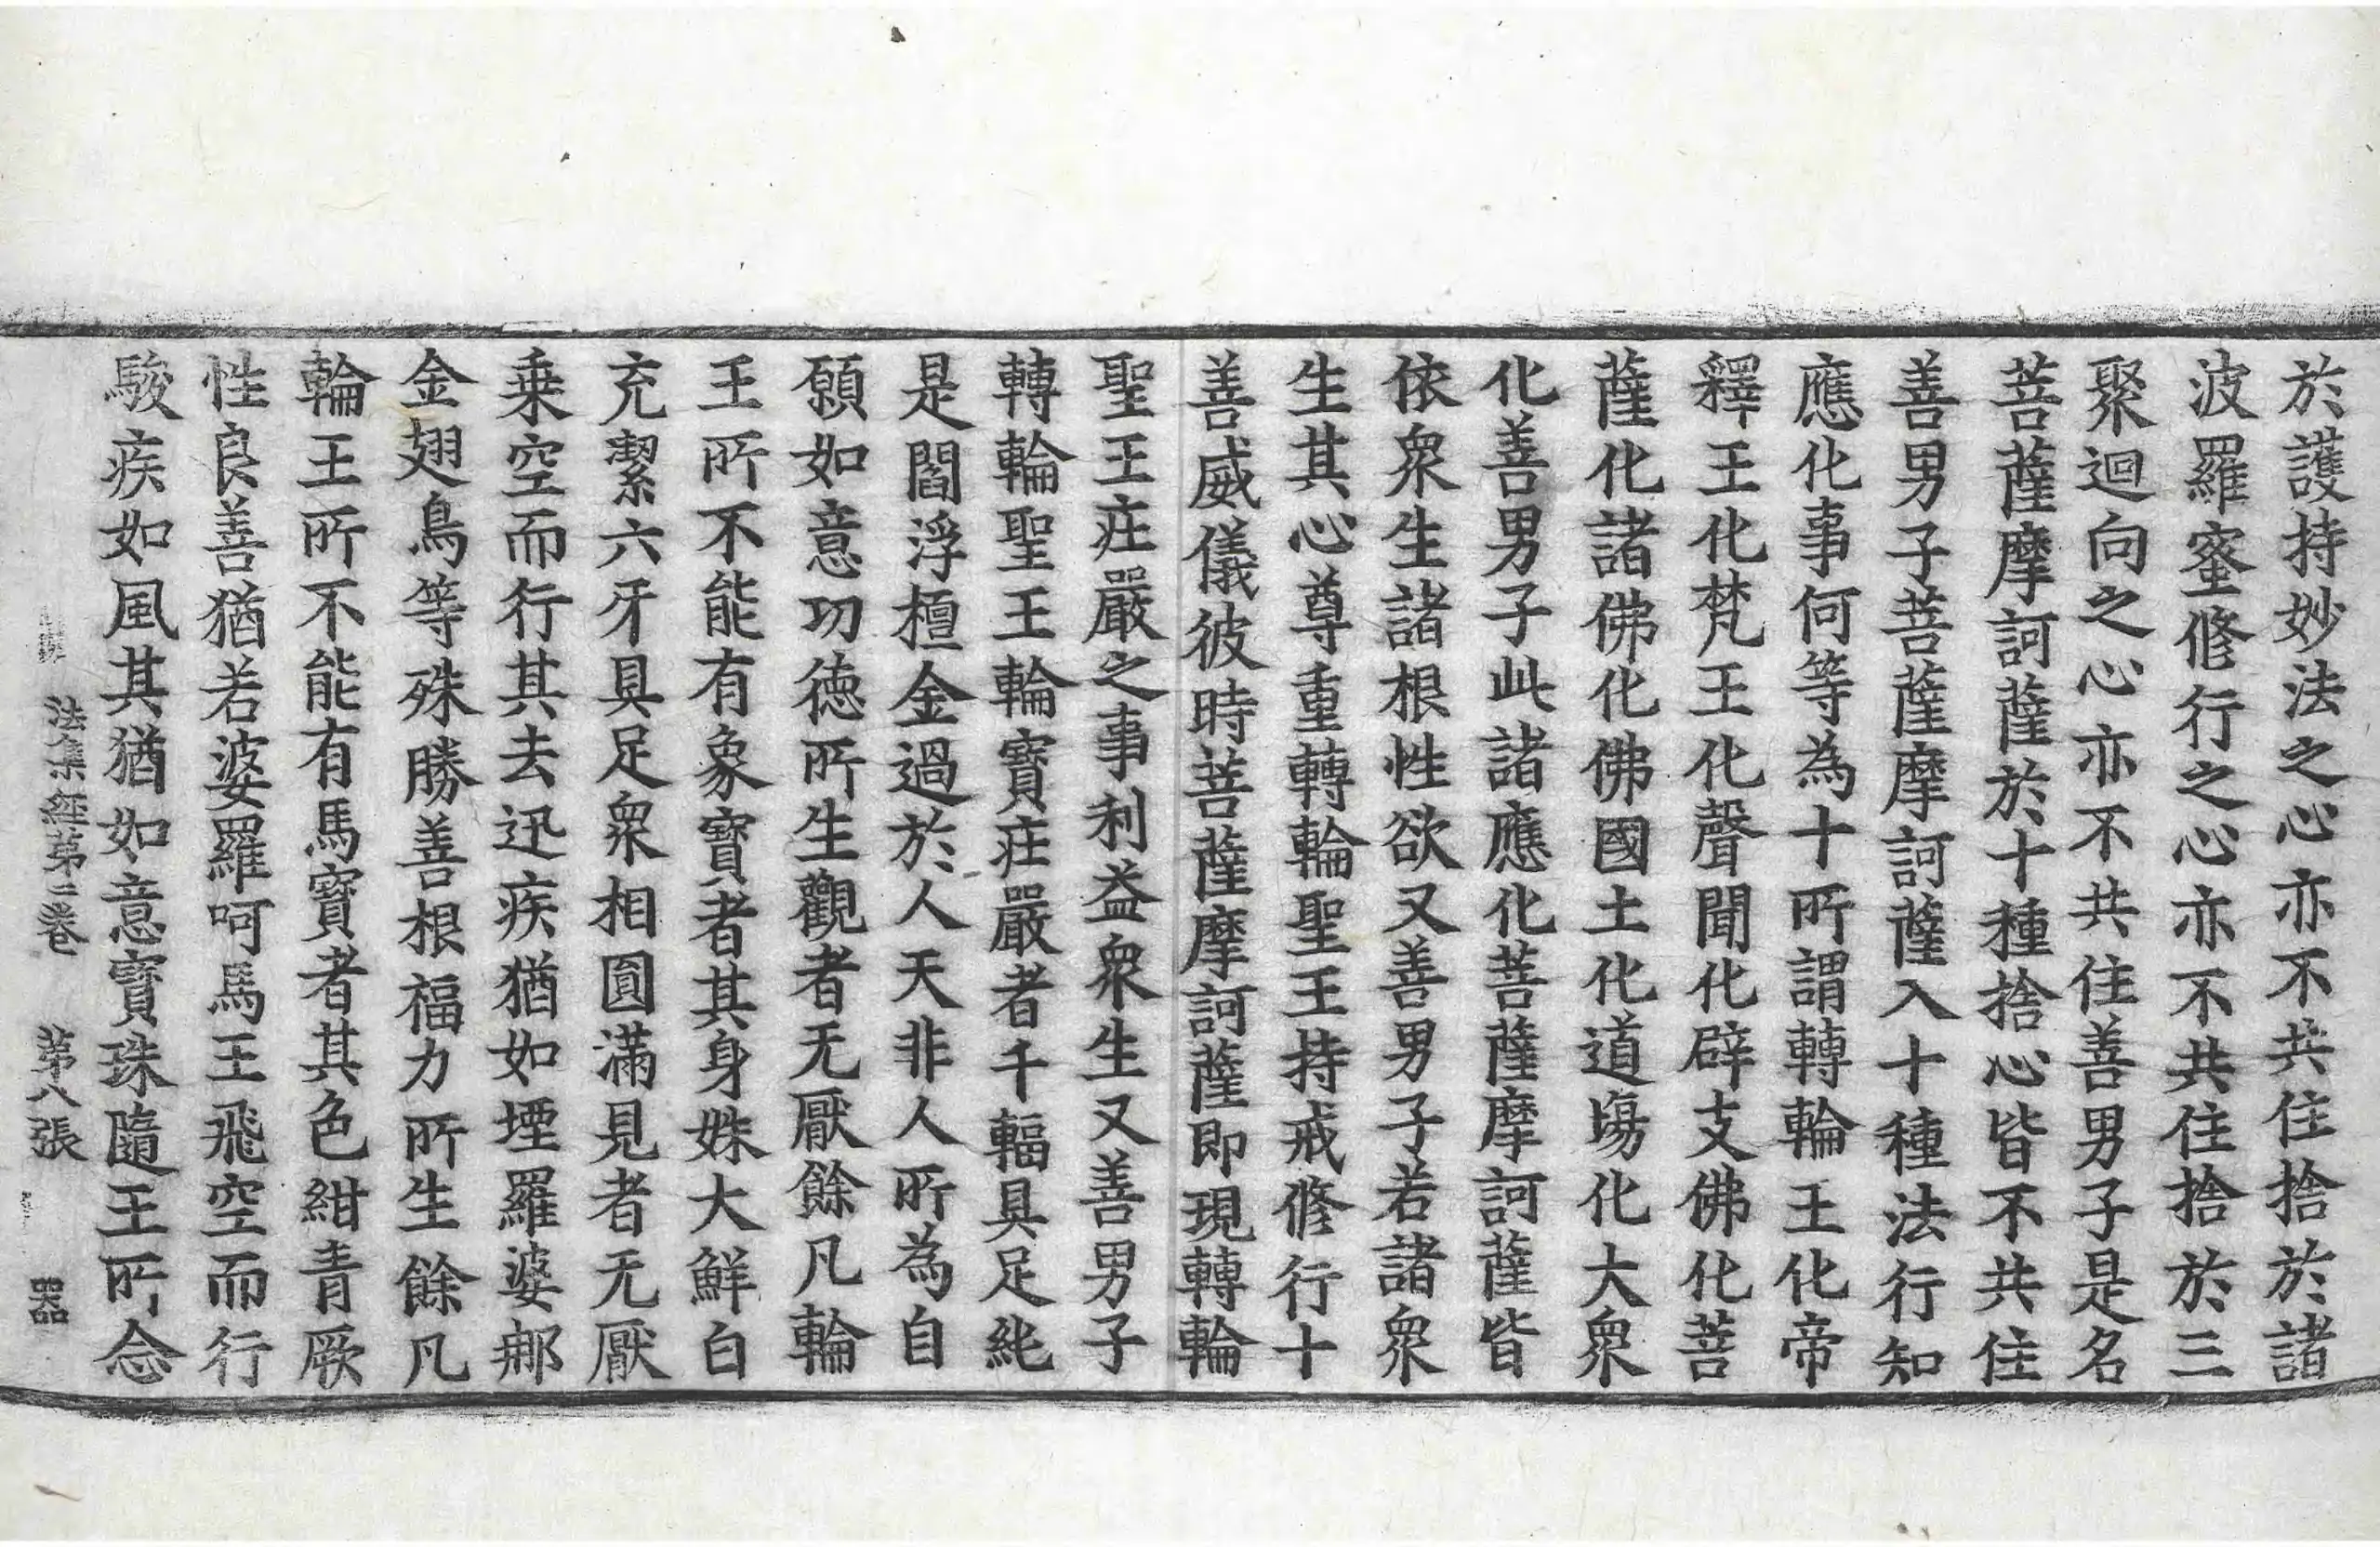 於護持妙法之心亦不共住捨於諸
波羅蜜修行之心亦不共住捨於三
聚迴向之心亦不共住善男子是名
菩薩摩訶薩於十種捨心皆不共住
善男子菩薩摩訶薩入十種法行知
應化事何等為十所謂轉輪王化帝
釋王化梵王化聲聞化辟支佛化菩
薩化諸佛化佛國土化道場化大衆
化善男子此諸應化菩薩摩訶薩皆
依衆生諸根性欲又善男子若諸衆
生其心尊重轉輪聖王持戒修行十
善威儀彼時菩薩摩訶薩即現轉輪
聖王莊嚴之事利益衆生又善男子
轉輪聖王輪寶莊嚴者千輻具足純
是閻浮檀金過於人天非人所為自
願如意功德所生觀者无厭餘凡輪
王所不能有象寶者其身姝大鮮白
充潔六牙具足衆相圓滿見者无厭
乗空而行其去迅疾猶如堙羅婆那
金翅鳥等殊勝善根福力所生餘凡
輪王所不能有馬寶者其色紺青厥
性良善猶若婆羅呵馬王飛空而行
駿疾如風其猶如意寶珠隨王所念
法集經第二卷 第八張 器